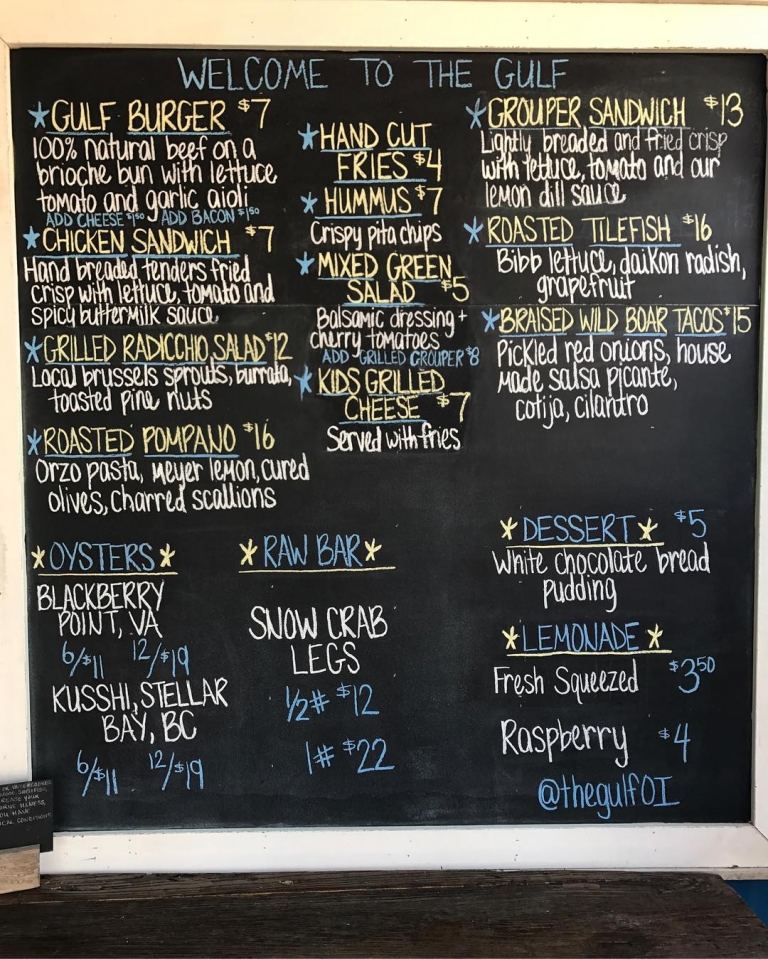 WELCOME TO THE GULF
GULF BURGER $7
100% natural beef on a
brioche bun with lettuce
tomato and garlic aioli
ADD CHEESE $1.50 ADD BACON $1.50
CHICKEN SANDWICH $7
Hand breaded tenders fried
crisp with lettuce, tomato and
spicy buttermilk sauce
GRILLED RADICCHIO SALAD $12
Local brussels sprouts, burrata,
toasted pine nuts
ROASTED POMPANO $16
Orzo pasta, Meyer lemon, cured
olives, charred scallions
HAND CUT
FRIES $4
HUMMUS $7
Crispy pita chips
MIXED GREEN
SALAD $5
Balsamic dressing +
cherry tomatoes
ADD GRILLED GROUPER $8
KIDS GRILLED
CHEESE $7
Served with fries
GROUPER SANDWICH $13
Lightly breaded and fried crisp
with lettuce, tomato and our
lemon dill sauce
ROASTED TILEFISH $16
Bibb lettuce, daikon radish,
grapefruit
BRAISED WILD BOAR TACOS $15
Pickled red onions, house
made salsa picante,
cotija, cilantro
*OYSTERS*
BLACKBERRY
POINT, VA
6/$11 12/$19
KUSSHI, STELLAR
BAY, BC
6/$11 12/$19
*RAW BAR*
SNOW CRAB
LEGS
1/2# $12
1# $22
*DESSERT* $5
White chocolate bread
pudding
*LEMONADE*
Fresh Squeezed $3.50
Raspberry $4
@thegulfOI